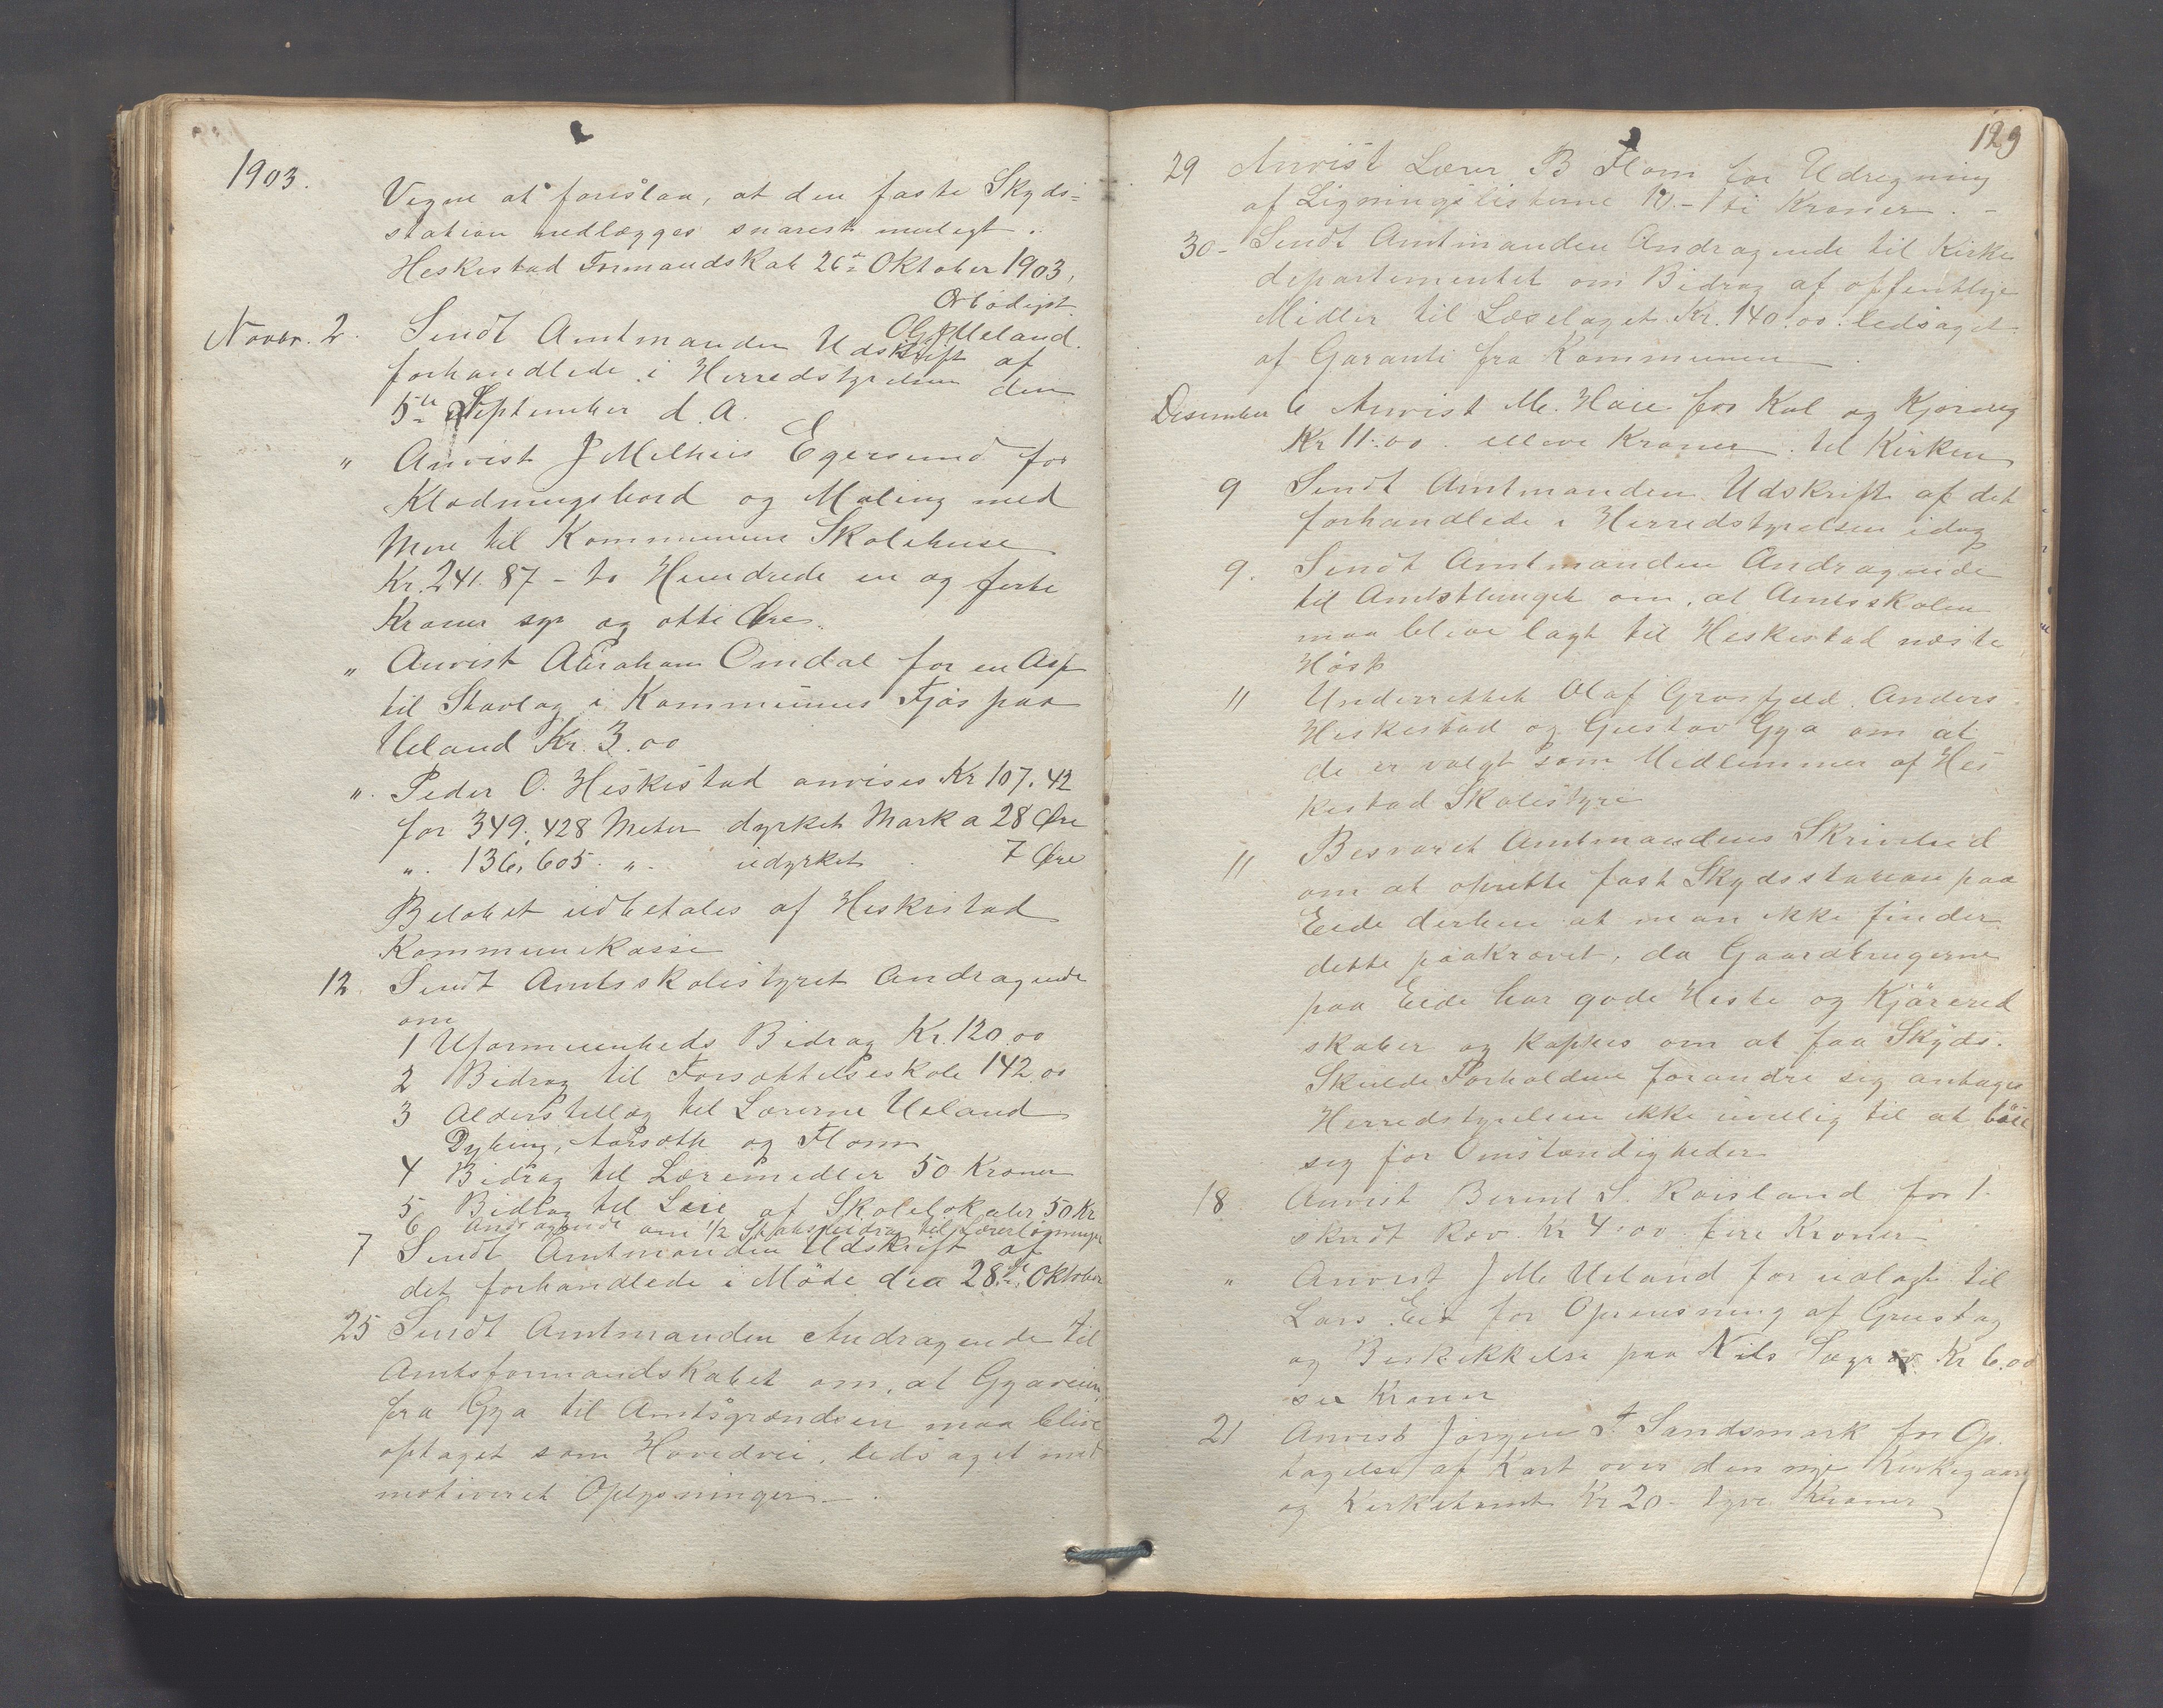 1903.
Vegne at foreslaa, at den faste Skyds=
station nedlægges snarest muligt.
Heskestad Formandskab 26de Oktober 1903,
Ærbødigst
O G Ueland.
Novbr. 2. Sendt Amtmanden Udskrift af
forhandlede i Herredstyrelsen den
5te September d. A.
" Anvist J Melhus Egersund for
Klædningsbord og Maling med
mere til Kommunens Skolehuse
Kr. 241.87 - to Hundrede en og førti
Kroner syv og otti Øre.
" Anvist Abraham Omdal for en Asp
til Stavlag i Kommunes Fjøs paa
Ueland Kr. 3.00
". Peder O. Heskestad anvises Kr 107.42
for 349,428 Meter dyrket Mark a 28 Øre
". 136,605. ". udyrket . 7 Øre
Beløbet udbetales af Heskestad
Kommunekasse
12. Sendt Amtsskolestyret Andragende
om
1 Uformuenheds Bidrag Kr. 120.00
2 Bidrag til Forsættelsesskole 142.00
3 Alderstillæg til Lærerne Ueland
Dybing, Aarsæth og Flom
4 Bidrag til Læremidler 50 Kroner
5 Bidrag til Leie af Skolelokaler 50 Kr
6 Andragende om 1/2 Statsbidrag til Lærerlønninger
7 Sendt Amtmanden Udskrift af
det forhandlede i Møde den 28de Oktober
25 Sendt Amtmanden Andragende til
Amtsformandskabet om, at Gyaveien,
fra Gya til Amtsgrændsen maa blive
optaget som Hovedvei, ledsaget med
motiveret Oplysninger.
129
29 Anvist Lærer B Flom for Udregning
af Ligningslisterne 10.- ti Kroner. -
30- Sendt Amtmanden Andragende til Kirke
departementet om Bidrag af offentlige
Midler til Læselaget Kr. 140.00. ledsaget
af Garanti fra Kommunen
Desember 6 Anvist M. Haie for Kul og Kjøring
Kr 11.00. elleve Kroner. til Kirken
9 Sendt Amtmanden Udskrift af det
forhandlede i Herredstyrelsen idag
9. Sendt Amtmanden Andragende
til Amtsthinget om, at Amtsskolen
maa blive lagt til Heskestad næste
Høst
11 Underrettet Olaf Grøsfjeld, Anders
Heskestad og Gustav Gya om at
de er valgt som Medlemmer af Hes
kestad Skolestyre
11 Besvaret Amtmandens Skrivelse
om at oprette fast Skydsstation paa
Eide derhen at man ikke finder
dette paakrævet, da Gaardbrugerne
paa Eide har gode Heste og Kjørered
skaber og kappes om at faa Skyds.
Skulde Forholdene forandre sig antages
Herredstyrelsen ikke uvillig til at bøie
sig for Omstændigheder
18 Anvist Berent S. Røisland for 1
skudt Ræv Kr 4.00 fire Kroner
" Anvist J M. Ueland for udlagt til
Lars Eie for Oprensning af Grustag
og Beskikkelse paa Nils Kr 6.00
sex Kroner
21 Anvist Jørgen T. Sandsmark for Op
tagelse af Kart over den nye Kirkegaard
og Kirketomt Kr 20 - tyve Kroner